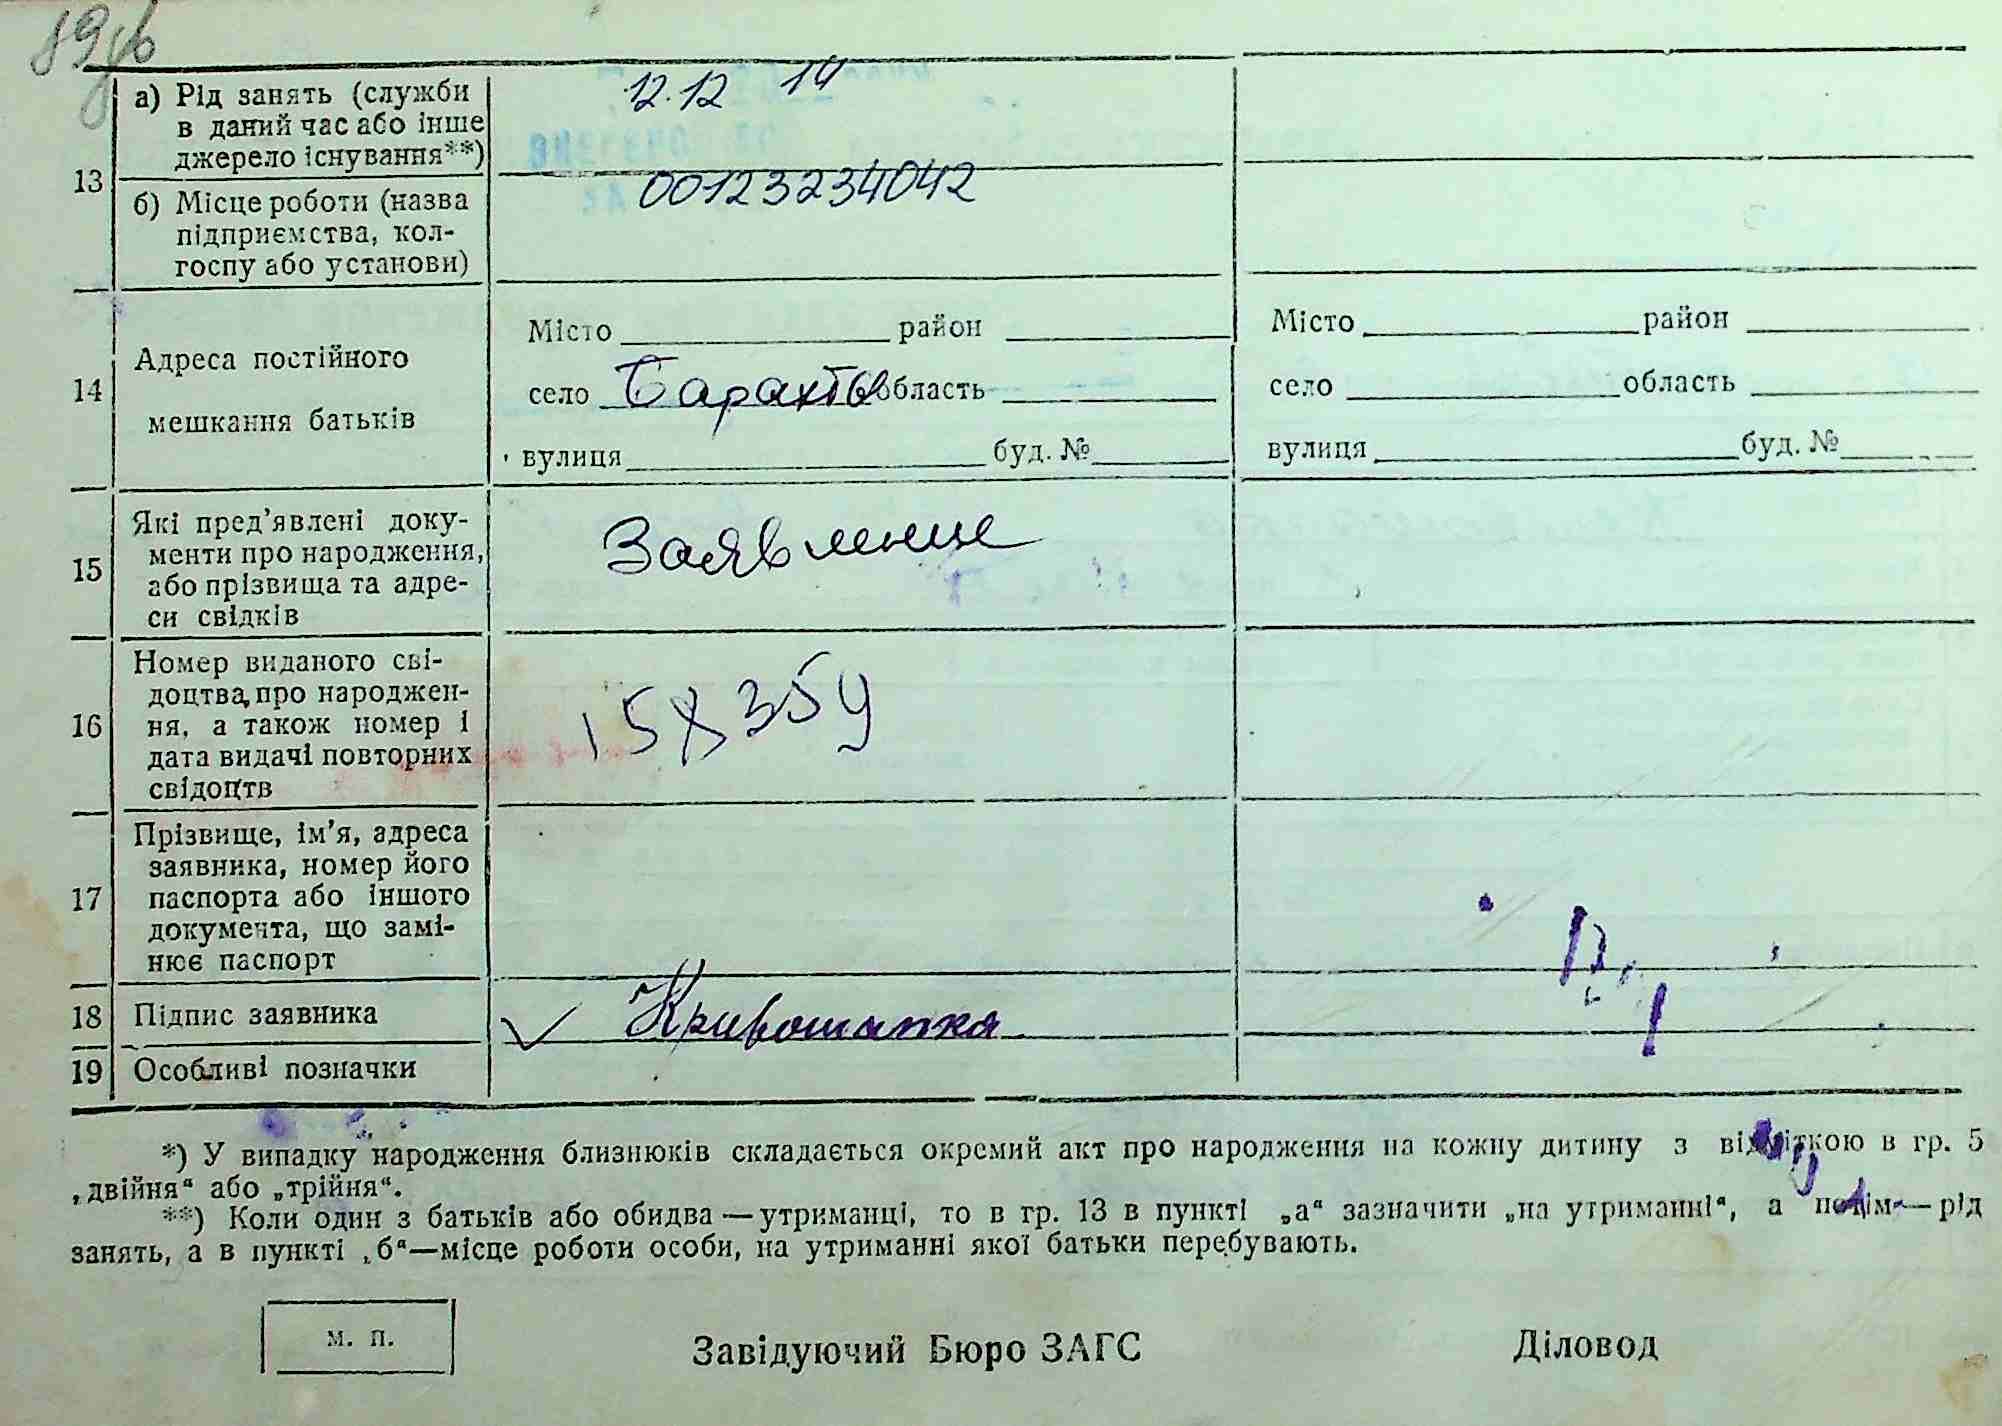 13
а) Рід занять (служби
в даний час або інше
джерело існування**)
12.12 14
б) Місце роботи (назва
підприємства, кол-
госпу або установи)
00123234042
14
Адреса постійного
мешкання батьків
Місто район
село Барахты область
вулиця буд. №
Місто район
село область
вулиця буд. №
15
Які пред’явлені доку-
менти про народження,
або прізвища та адре-
си свідків
Заявление
16
Номер виданого сві-
доцтва, про народжен-
ня, а також номер і
дата видачі повторних
свідоцтв
17
Прізвище, ім’я, адреса
заявника, номер його
паспорта або іншого
документа, що замі-
нює паспорт
18
Підпис заявника
Кривошапка
19
Особливі позначки
*) У випадку народження близнюків складається окремий акт про народження на кожну дитину з відміткою в гр. 5
„двійня“ або „трійня“.
**) Коли один з батьків або обидва — утриманці, то в гр. 13 в пункті „а“ зазначити „на утриманні“, а потім — рід
занять, а в пункті „б“—місце роботи особи, на утриманні якої батьки перебувають.
м. п.
Завідуючий Бюро ЗАГС
Діловод